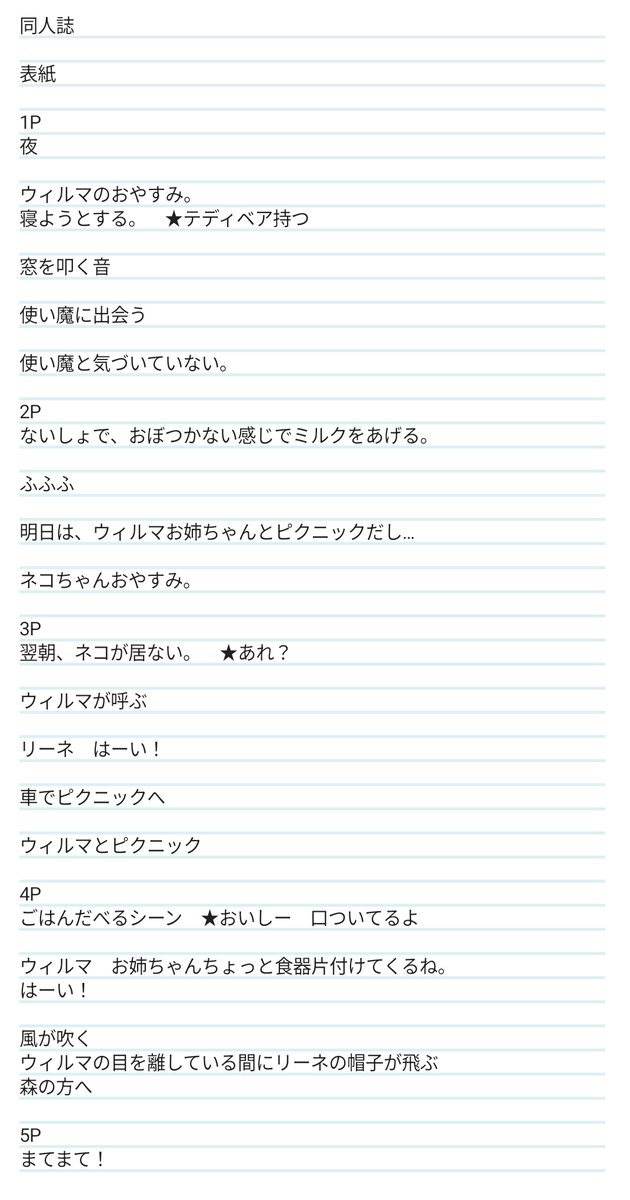 同人誌
表紙
1P
夜
ウィルマのおやすみ。
寝ようとする。　★テディベア持つ
窓を叩く音
使い魔に出会う
使い魔と気づいていない。
2P
ないしょで、おぼつかない感じでミルクをあげる。
ふふふ
明日は、ウィルマお姉ちゃんとピクニックだし…
ネコちゃんおやすみ。
3P
翌朝、ネコが居ない。　★あれ？
ウィルマが呼ぶ
リーネ　はーい！
車でピクニックへ
ウィルマとピクニック
4P
ごはんだべるシーン　★おいしー　口ついてるよ
ウィルマ　お姉ちゃんちょっと食器片付けてくるね。
はーい！
風が吹く
ウィルマの目を離している間にリーネの帽子が飛ぶ
森の方へ
5P
まてまて！